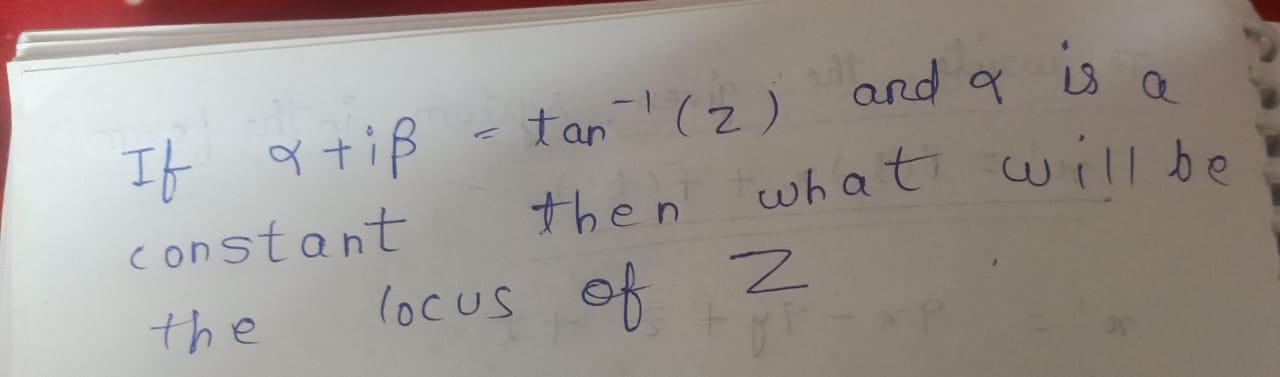 If α+iβ = tan⁻¹(z) and α is a
constant then what will be
the locus of Z